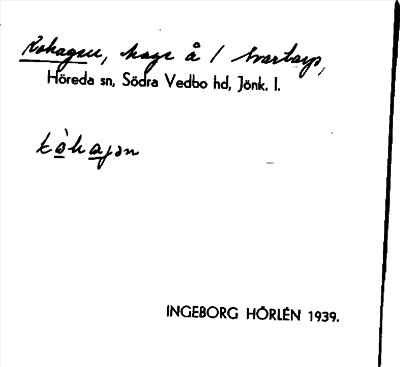 Kohagen, hage å 1 Svartarp,
Höreda sn, Södra Vedbo hd, Jönk. l.
kòhagən
INGEBORG HÖRLÉN 1939.